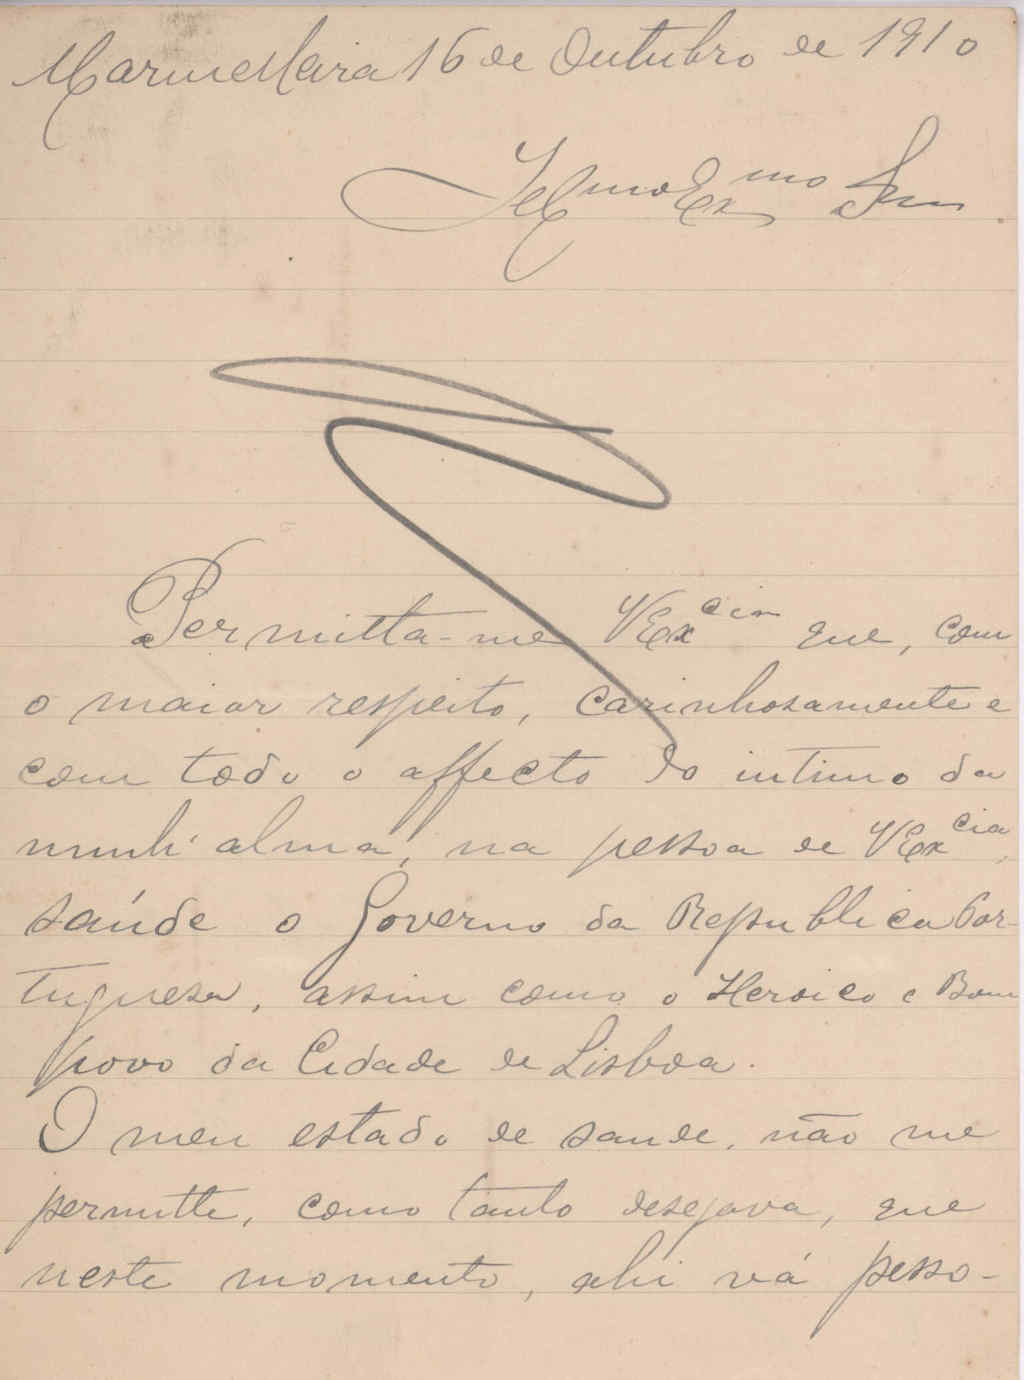 Marmelleira 16 de Outubro de 1910
Illmo Exmo Snr
Permitta-me VExcia que, com
o maior respeito, carinhosamente e
com todo o affecto do intimo da
minh'alma, na pessoa de VExcia,
saúde o Governo da Republica Por-
tuguesa, assim como o Heroico e Bom
povo da Cidade de Lisboa.
O meu estado de saude, não me
permitte, como tanto desejava, que
neste momento, ahi vá pesso-